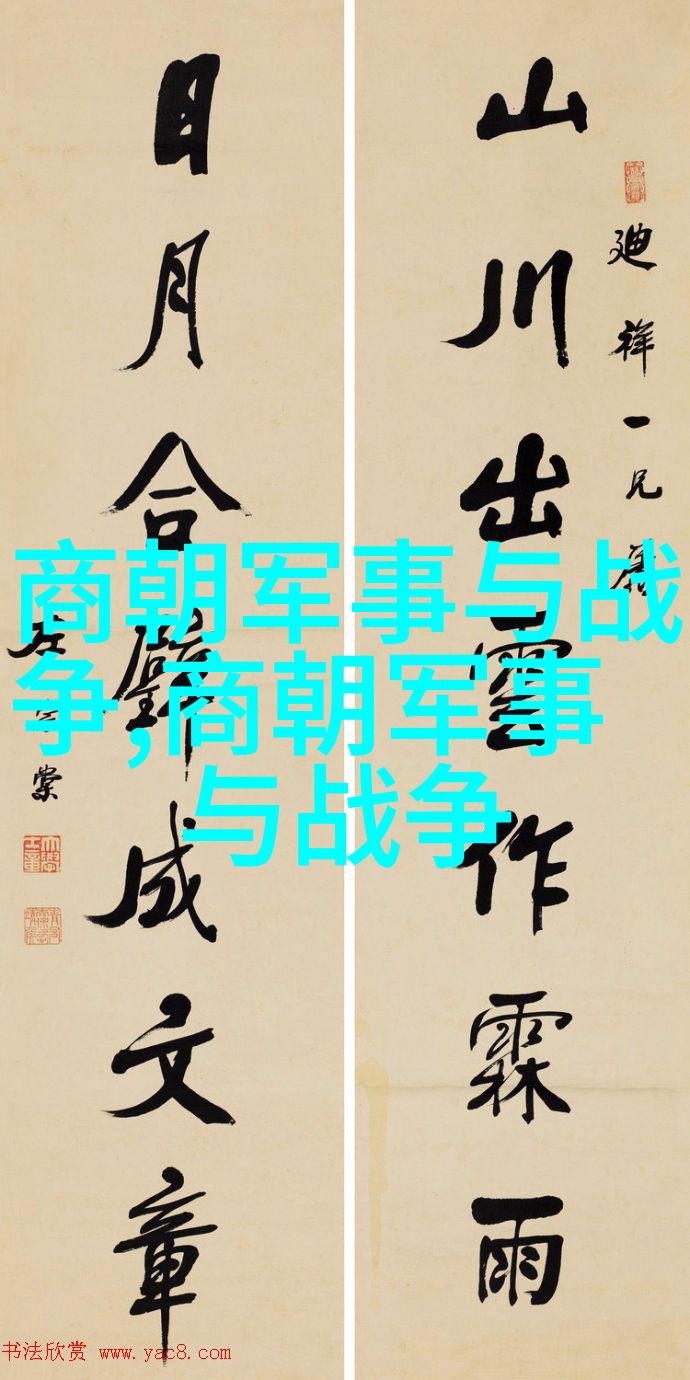 山川出雲作霖雨
廸祥一兄
日月合璧成文章
左宗棠
商朝军事与战
争,商朝军事
与战争
书法欣赏 www.yac8.com